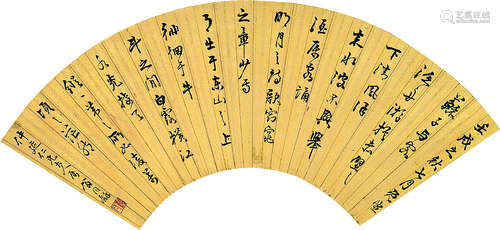 壬戌之秋七月既望
蘇子与客
泛舟游於赤壁之
下清風徐
来水波不興舉
酒属客誦
明月之詩歌窈窕
之章少焉
月出于東山之上
徘徊于斗
牛之間白露橫江
水光接天
縱一葦之所如凌萬
頃之茫然
仁兄大人属